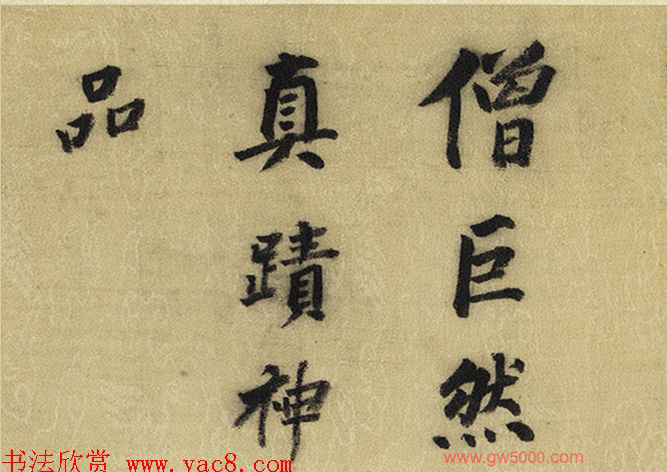 僧巨然
真蹟神
品
书法欣赏 www.yac8.com
www.gw5000.com